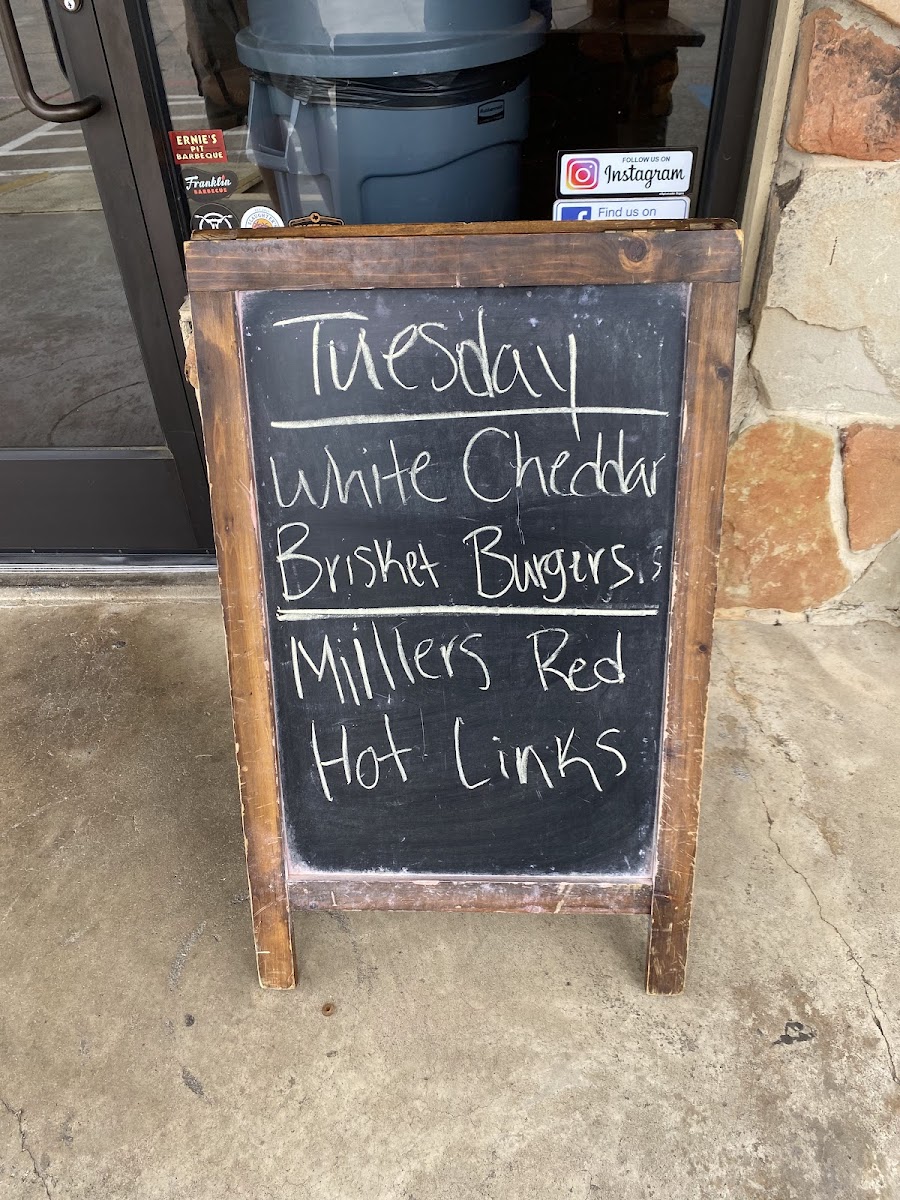 ERNIE'S
PIT
BARBEQUE
Franklin
BARBECUE
FOLLOW US ON
Instagram
Find us on
Tuesday
White Cheddar
Brisket Burgers
Millers Red
Hot Links